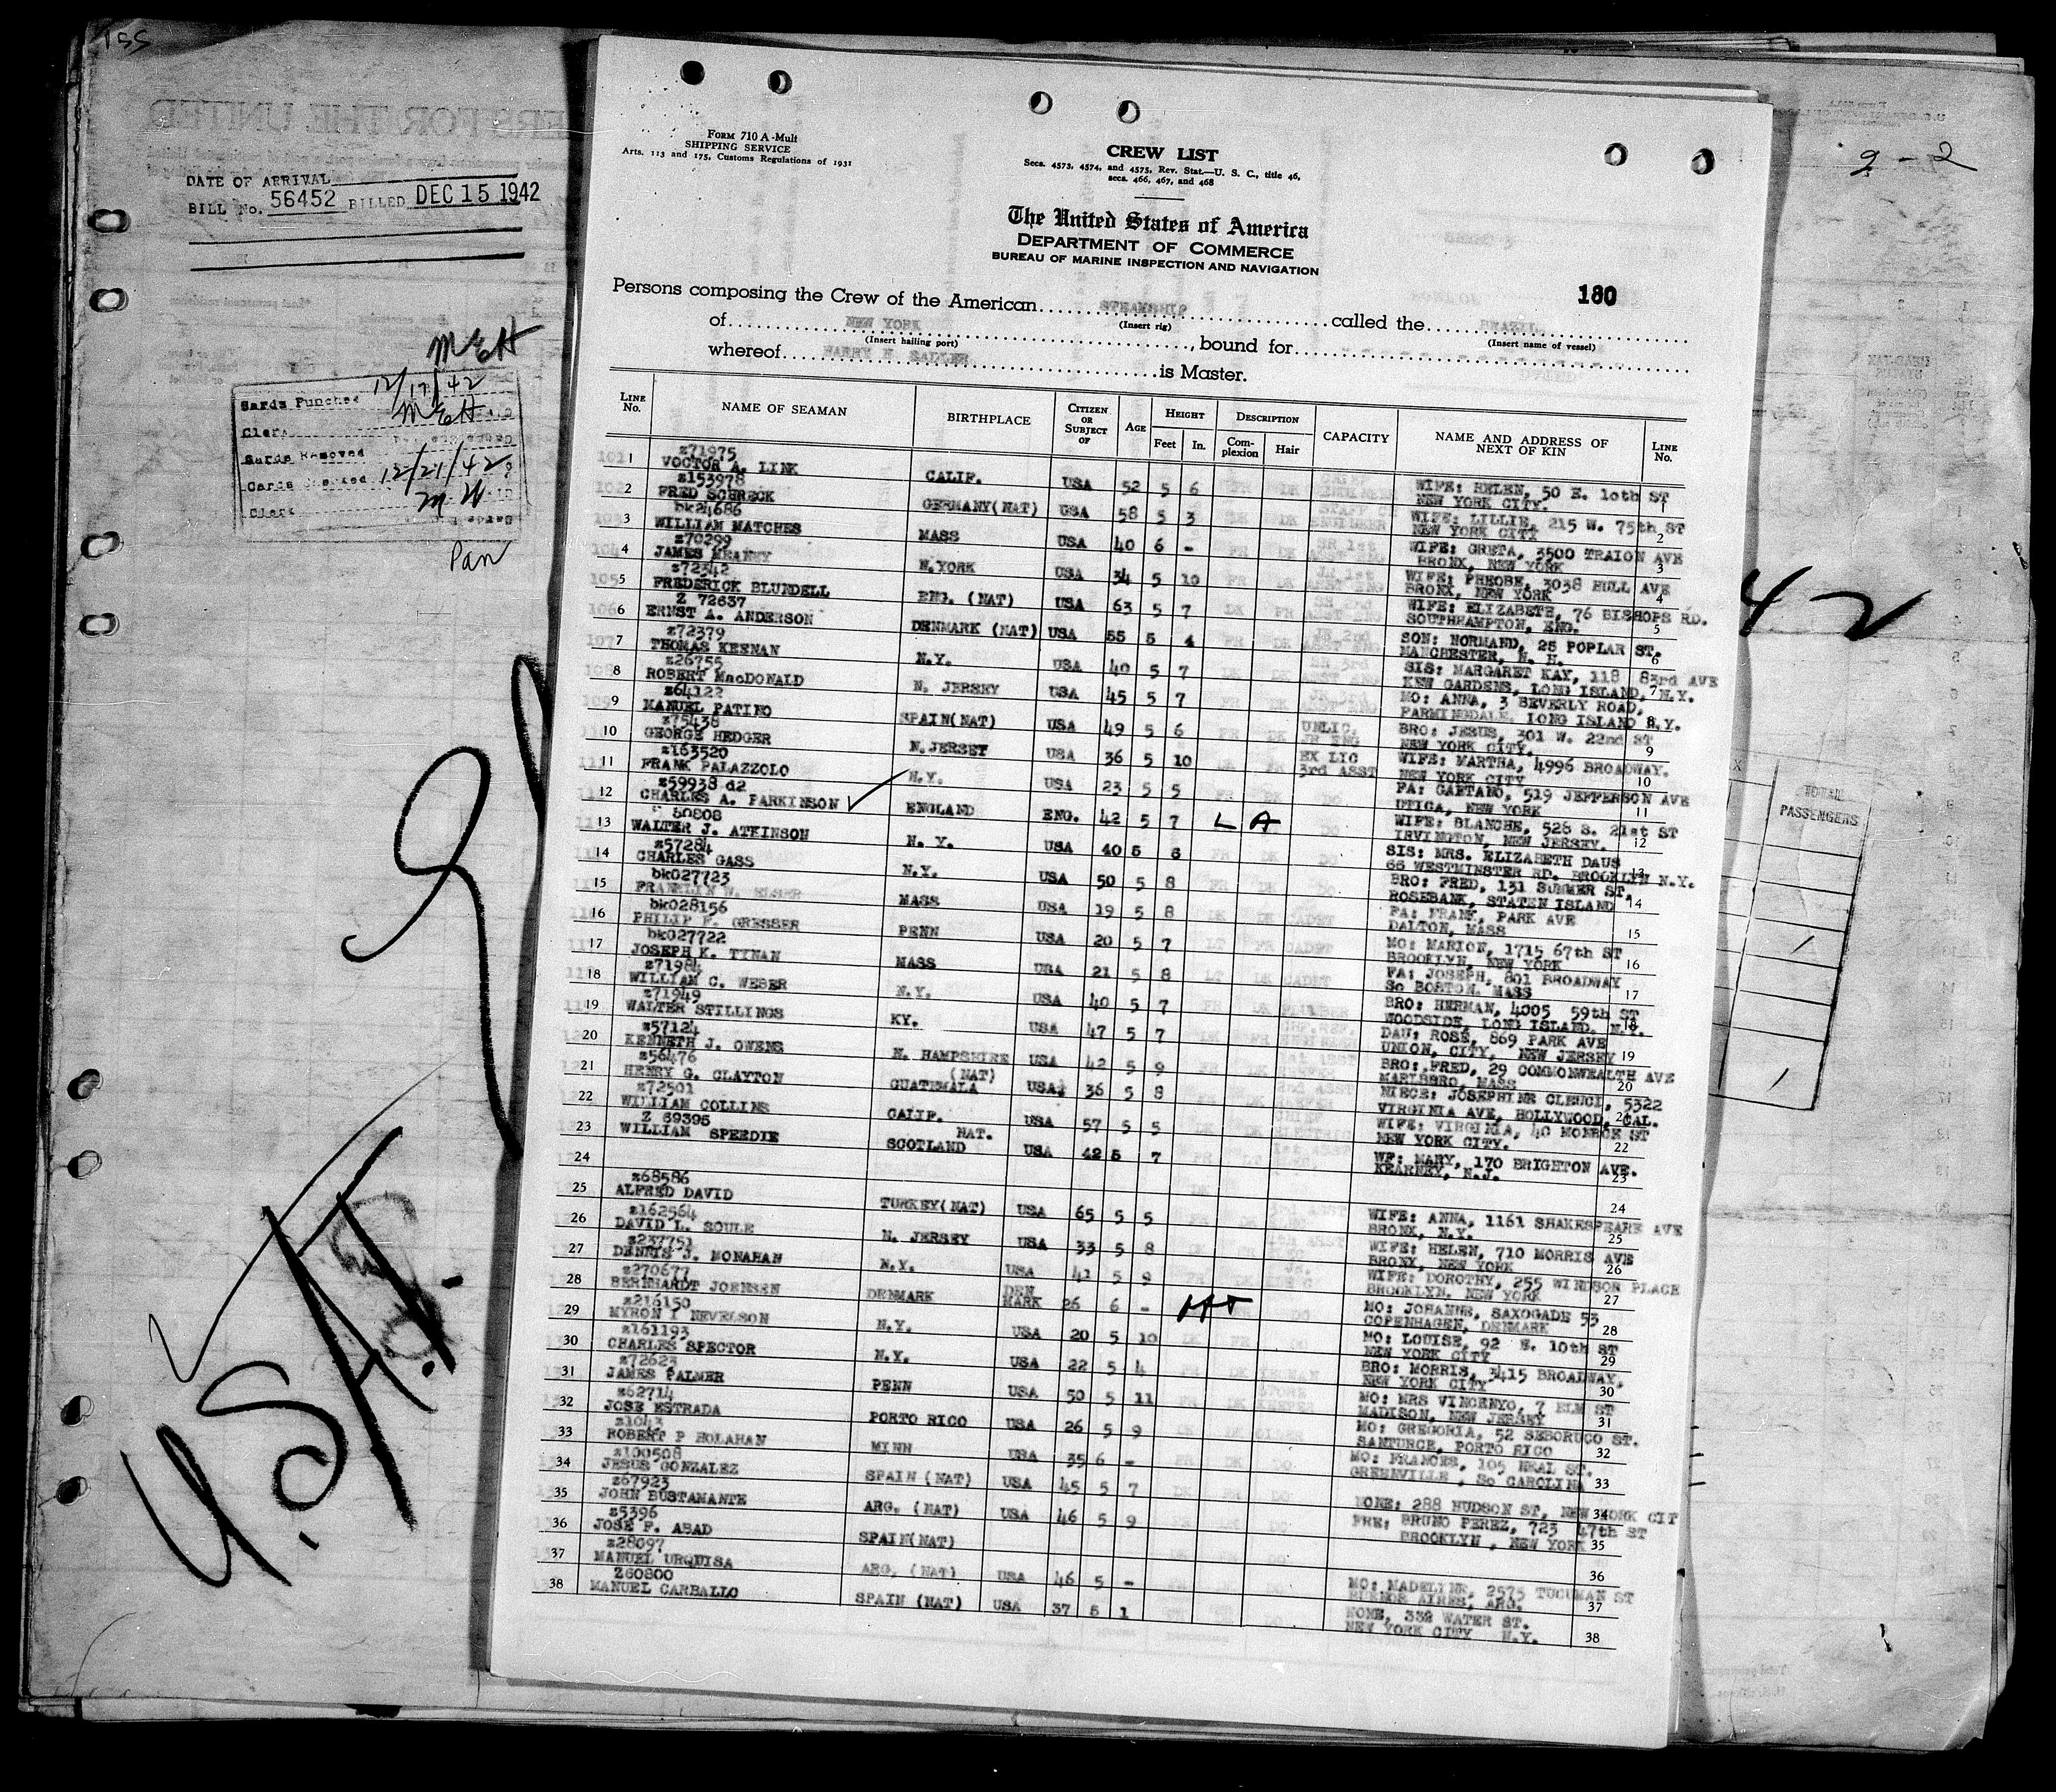 155
DATE OF ARRIVAL
BILL No. 56452 BILLED DEC 15 1942
MEH
Cards Punched 12/17/42
Clerk MEH
Cards Removed
Cards Checked 12/21/42
Clerk M H
Pan
U.S.A.T.
2 - 2
42
TOTAL PASSENGERS
FORM 710 A-Mult
SHIPPING SERVICE
Arts. 113 and 175, Customs Regulations of 1931
CREW LIST
Secs. 4573, 4574, and 4575, Rev. Stat.—U. S. C., title 46,
secs. 466, 467, and 468
The United States of America
DEPARTMENT OF COMMERCE
BUREAU OF MARINE INSPECTION AND NAVIGATION
180
Persons composing the Crew of the American STEAMSHIP called the BRAZIL
(Insert rig) (Insert name of vessel)
of NEW YORK, bound for
(Insert hailing port)
whereof HARRY N. SADLER is Master.
LINE No. NAME OF SEAMAN BIRTHPLACE CITIZEN OR SUBJECT OF AGE HEIGHT Feet In. DESCRIPTION Complexion Hair CAPACITY NAME AND ADDRESS OF NEXT OF KIN LINE No.
z71975
1 VOCTOR A. LINK CALIF. USA 52 5 6 WIFE: HELEN, 50 E. 10th ST
NEW YORK CITY. 1
z153978
2 FRED SCHRECK GERMANY(NAT) USA 58 5 3 WIFE: LILLIE, 215 W. 75th ST
NEW YORK CITY 2
bk24686
3 WILLIAM MATCHES MASS USA 40 6 - WIFE: GRETA, 3500 TRAION AVE
BRONX, NEW YORK 3
z70299
4 JAMES MEANEY N.YORK USA 34 5 10 WIFE: PHEOBE, 3038 HULL AVE
BRONX, NEW YORK 4
z72342
5 FREDERICK BLUNDELL ENG. (NAT) USA 63 5 7 WIFE: ELIZABETH, 76 BISHOPS RD.
SOUTHHAMPTON, ENG. 5
Z 72637
6 ERNST A. ANDERSON DENMARK (NAT) USA 55 5 4 SON: NORMAND, 25 POPLAR ST.
MANCHESTER, N. H. 6
z72379
7 THOMAS KEENAN N.Y. USA 40 5 7 SIS: MARGARET KAY, 118 83rd AVE
KEW GARDENS, LONG ISLAND, N.Y. 7
z26755
8 ROBERT MacDONALD N. JERSEY USA 45 5 7 MO: ANNA, 3 BEVERLY ROAD,
FARMINGDALE, LONG ISLAND N.Y. 8
z64122
9 MANUEL PATINO SPAIN(NAT) USA 49 5 6 UNLIC. JR ENG BRO: JESUS, 301 W. 22nd ST
NEW YORK CITY. 9
z75438
10 GEORGE HEDGER N.JERSEY USA 36 5 10 EX LIC 3rd ASST WIFE: MARTHA, 4996 BROADWAY.
NEW YORK CITY 10
z163520
11 FRANK PALAZZOLO N.Y. USA 23 5 5 FA: GAETANO, 519 JEFFERSON AVE
UTICA, NEW YORK 11
z59938 d2
12 CHARLES A. PARKINSON ✓ ENGLAND ENG. 42 5 7 L A WIFE: BLANCHE, 526 S. 21st ST
IRVINGTON, NEW JERSEY. 12
13 WALTER J. ATKINSON N. Y. USA 40 5 8 SIS: MRS. ELIZABETH DAUS
66 WESTMINSTER RD. BROOKLYN N.Y. 13
z57284
14 CHARLES GASS N.Y. USA 50 5 8 BRO: FRED, 131 SUMMER ST,
ROSEBANK, STATEN ISLAND 14
bk027723
15 FRANKLIN W. MASS USA 19 5 8 FA: FRANK, PARK AVE
DALTON, MASS 15
bk028156
16 PHILIP F. GRESSER PENN USA 20 5 7 MO: MARION, 1715 67th ST
BROOKLYN, NEW YORK 16
bk027722
17 JOSEPH K. TYNAN MASS USA 21 5 8 FA: JOSEPH, 801 BROADWAY
So BOSTON, MASS 17
z71984
18 WILLIAM C. WEBER N.Y. USA 40 5 7 BRO: HERMAN, 4005 59th ST
WOODSIDE, LONG ISLAND, N.Y. 18
z71949
19 WALTER STILLINGS KY. USA 47 5 7 DAU: ROSE, 869 PARK AVE
UNION, CITY, NEW JERSEY 19
z57124
20 KENNETH J. OWENS N. HAMPSHIRE USA 42 5 9 BRO: FRED, 29 COMMONWEALTH AVE
MARLBORO, MASS 20
z56476
21 HENRY G. CLAYTON (NAT) GUATEMALA USA 36 5 8 NIECE: JOSEPHINE CLEUCI, 5322
VIRGINIA AVE, HOLLYWOOD, CAL. 21
z72501
22 WILLIAM COLLINS CALIF. USA 57 5 5 WIFE: VIRGINIA, 40 MONROE ST
NEW YORK CITY. 22
Z 69395
23 WILLIAM SPEEDIE NAT. SCOTLAND USA 42 5 7 WF: MARY, 170 BRIGHTON AVE.
KEARNEY, N.J. 23
24 24
z68586
25 ALFRED DAVID TURKEY(NAT) USA 65 5 5 WIFE: ANNA, 1161 SHAKESPEARE AVE
BRONX, N.Y. 25
z162564
26 DAVID L. SOULE N. JERSEY USA 33 5 8 WIFE: HELEN, 710 MORRIS AVE
BRONX, NEW YORK 26
z237751
27 DENNIS J. MONAHAN N.Y. USA 41 5 9 WIFE: DOROTHY, 255 WINDSOR PLACE
BROOKLYN, NEW YORK 27
z270677
28 BERNHARDT JOENSEN DENMARK DEN MARK 26 6 - MO: JOHANNE, SAXOGADE 53
COPENHAGEN, DENMARK 28
z216150
29 MYRON I NEVELSON N.Y. USA 20 5 10 MO: LOUISE, 92 E. 10th ST
NEW YORK CITY 29
z161193
30 CHARLES SPECTOR N.Y. USA 22 5 4 BRO: MORRIS, 3415 BROADWAY,
NEW YORK CITY 30
z72623
31 JAMES PALMER PENN USA 50 5 11 MO: MRS VINCENYO, 7 ELM ST
MADISON, NEW JERSEY 31
z62714
32 JOSE ESTRADA PORTO RICO USA 26 5 9 MO: GREGORIA, 52 SEBORUCO ST.
SANTURCE, PORTO RICO 32
z1043
33 ROBERT P HOLAHAN MINN USA 35 6 - MO: FRANCES, 105 NEAL ST.
GREENVILLE, So CAROLINA 33
z100508
34 JESUS GONZALEZ SPAIN (NAT) USA 45 5 7 NONE: 288 HUDSON ST, NEW YORK CIT 34
z67923
35 JOHN BUSTAMANTE ARG. (NAT) USA 46 5 9 FRE: BRUNO PEREZ, 723 47th ST
BROOKLYN, NEW YORK 35
z5396
36 JOSE F. ABAD SPAIN(NAT) 36
z28097
37 MANUEL URQUISA ARG. (NAT) USA 46 5 - MO: MADELINE, 2575 TUCUMAN ST
BUENOS AIRES, ARG. 37
Z60800
38 MANUEL CARBALLO SPAIN (NAT) USA 37 5 1 NONE, 332 WATER ST.
NEW YORK CITY N.Y. 38